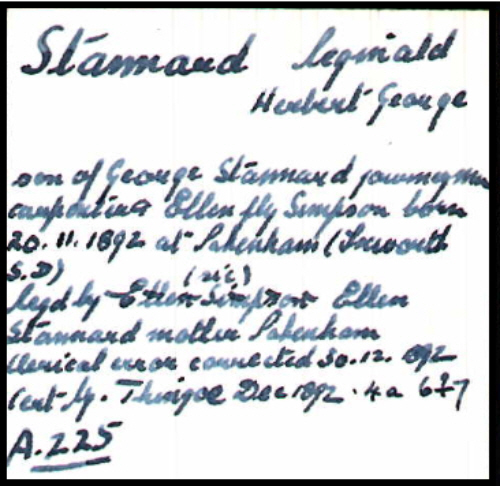 Stannard Reginald
Herbert George
son of George Stannard journeyman
carpenter & Ellen fly Simpson born
20.11.1892 at Pakenham (Ixworth
S.D)
(sic)
Regd by Ellen Simpson Ellen
Stannard mother Pakenham
Clerical error corrected 30.12.1892
Cert fr. Thingoe Dec 1892. 4a 677
A.225